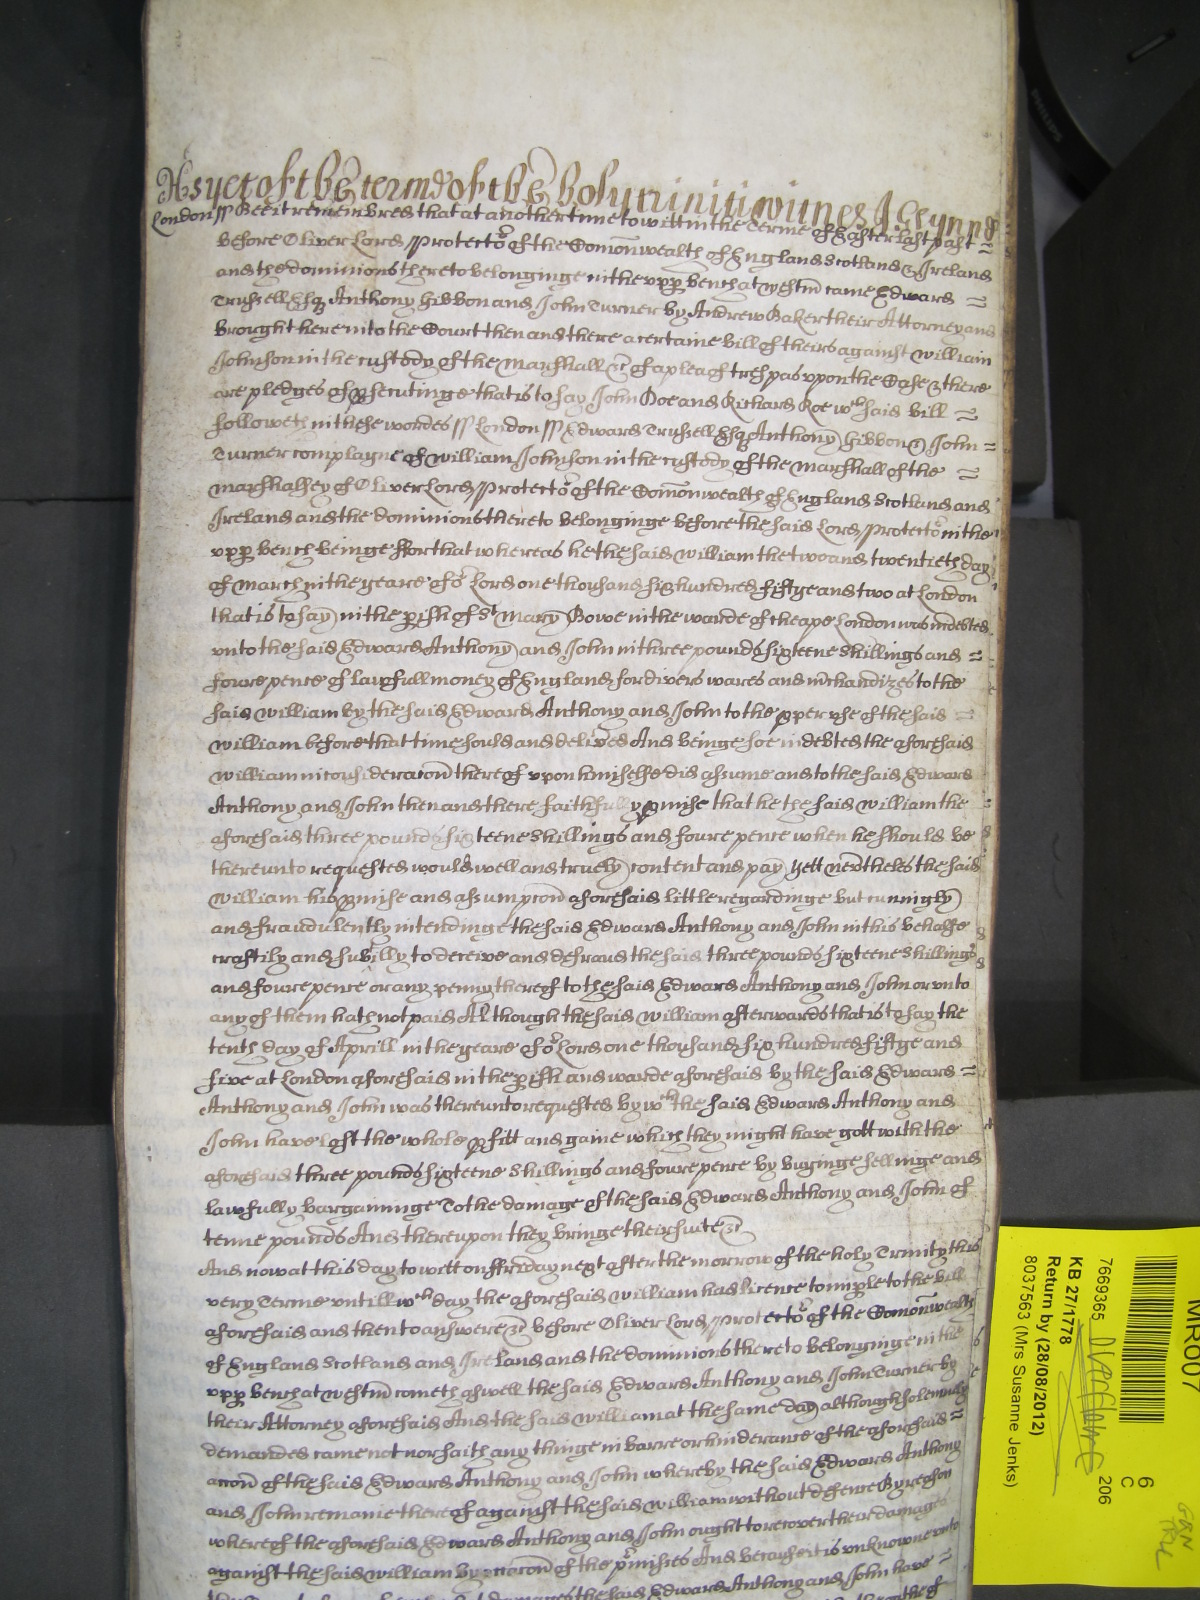 As yet of the terme of the holy trinitie witnes J Glynne
London ss Bee it remembred that at another time to witt in the Terme of Easter last past =
before Oliver Lord Protector of the Comonwealth of England Scotland & Ireland
and the dominions thereto belonginge in the upp bench at westm came Edward =
Trussell Esq Anthony Gibbon and John Turner by Andrew Baker their Attorney and
brought here into the Court then and there a certaine bill of theirs against William
Johnson in the custody of the Marshall &c of a plea of trespas upon the Case & there
are pledges of psecutinge that is to say John Doe and Richard Roe wch said bill =
followeth in these wordes ss London ss Edward Trussell Esq Anthony Gibbon & John =
Turner complayne of William Johnson in the custody of the marshall of the =
marshalsey of Oliver Lord Protector of the Comonwealth of England Scotland and
Ireland and the dominions thereto belonginge before the said Lord Protector in the
upp bench beinge ffor that whereas he the said William the two and twentieth day
of March in the yeare of or Lord one thousand six hundred fiftye and two at London
that is to say in the pish of St Mary Bowe in the warde of Cheape London was indebted
unto the said Edward Anthony and John in three pounds sixteene shillings and =
foure pence of lawfull money of England for divers wares and mchandizes to the
said William by the said Edward Anthony and John to the pper use of the said =
William before that time sould and delived And beinge soe indebted the aforesaid
William in consideracon thereof upon himselfe did assume and to the said Edward
Anthony and John then and there faithfully pmise that he the said William the
aforesaid three pounds sixteene shillings and foure pence when he should be
thereunto requested would well and truely content and pay Yett nevtheles the said
William his pmise and assumpcon aforesaid little regardinge but cunningly
and fraudulently intendinge the said Edward Anthony and John in this behalfe
craftily and subtilly to deceive and defraud the said three pounds sixteene shillings
and foure pence or any penny thereof to the said Edward Anthony and John or unto
any of them hath not paid Although the said William afterwards that is to say the
tenth day of Aprill in the yeare of or Lord one thousand six hundred fiftye and
five at London aforesaid in the pish and warde aforesaid by the said Edward =
Anthony and John was thereunto requested by wch the said Edward Anthony and
John have lost the whole pfitt and gaine which they might have gott with the
aforesaid three pounds sixteene shillings and foure pence by buyinge sellinge and
lawfully bargaininge To the damage of the said Edward Anthony and John of
tenne pounds And thereupon they bringe their suite &c
And now at this day to witt on ffriday next after the morrow of the holy Trinity this
very Terme untill wch day the aforesaid William had licence to imple to the bill
aforesaid and then to answere &c before Oliver Lord Protector of the Comonwealth
of England Scotland and Ireland and the dominions thereto belonginge in the
upp bench at westm cometh aswell the said Edward Anthony and John Turner by
their Attorney aforesaid And the said William at the same day although solemnly
demanded came not nor saith any thinge in barre or hinderance of the aforesaid =
accon of the said Edward Anthony and John whereby the said Edward Anthony
and John remaine thereof against the said William without defence By reason
whereof the aforesaid Edward Anthony and John ought to recover their damages
against the said William by occacon of the pmisses And because it is unknowne unto
damages the said Edward Anthony and John have =
PHILIPS
MR007
7669365
KB 27/1778
Return by (28/08/2012)
8037563 (Mrs Susanne Jenks)
6
C
206